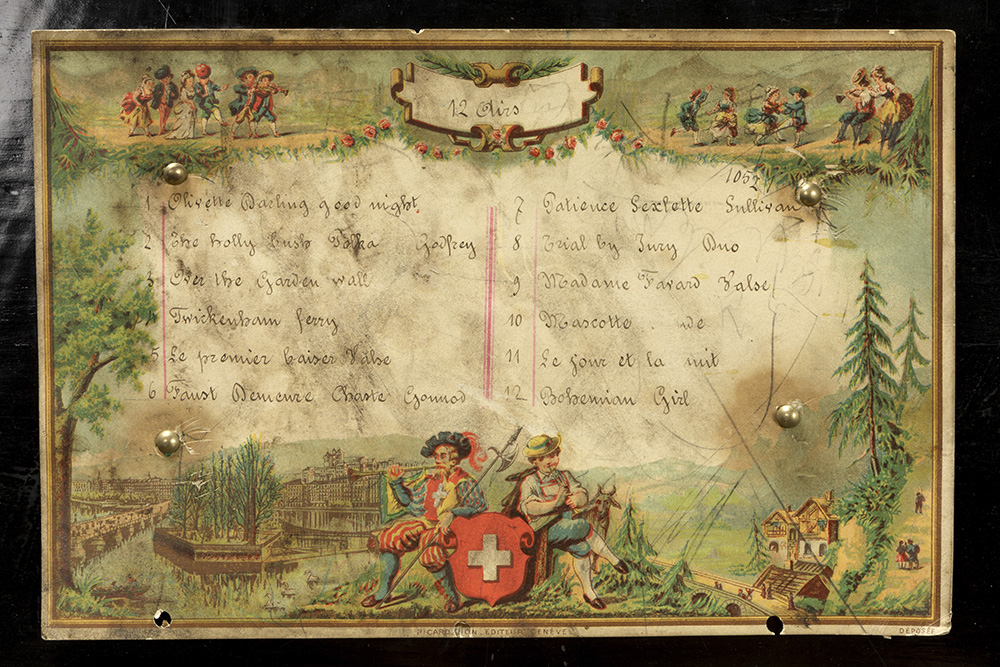 12 Airs
1052
1 Olivette Darling good night
2 The holly bush Polka Godfrey
3 Over the Garden wall
4 Twickenham ferry
5 Le premier baiser Valse
6 Faust Demeure Chaste Gounod
7 Patience Sextette Sullivan
8 Trial by Jury Duo
9 Madame Favard Valse
10 Mascotte . de
11 Le jour et la nuit
12 Bohemian Girl
PICARD-LION EDITEUR GENÈVE
DÉPOSÉE